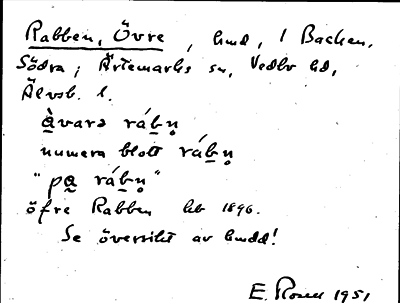 Rabben, Övre, hmd, i Backen,
Södra; Ärtemarks sn, Vedbo hd,
Älvsb. l.
å̰vara rábn̥
numera blott rábn̥
"pa̰ rábn̥"
öfre Rabben hb 1896.
Se översikt av hmdd!
E. Rosell 1951